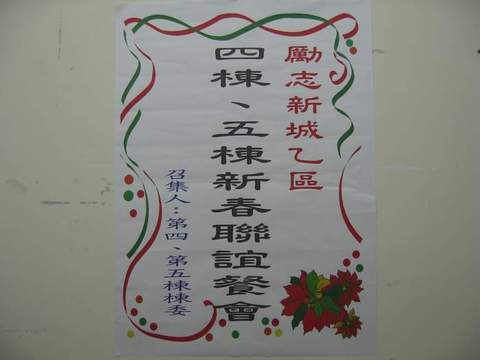 勵志新城乙區
四棟、五棟新春聯誼餐會
召集人：第四、第五棟棟委